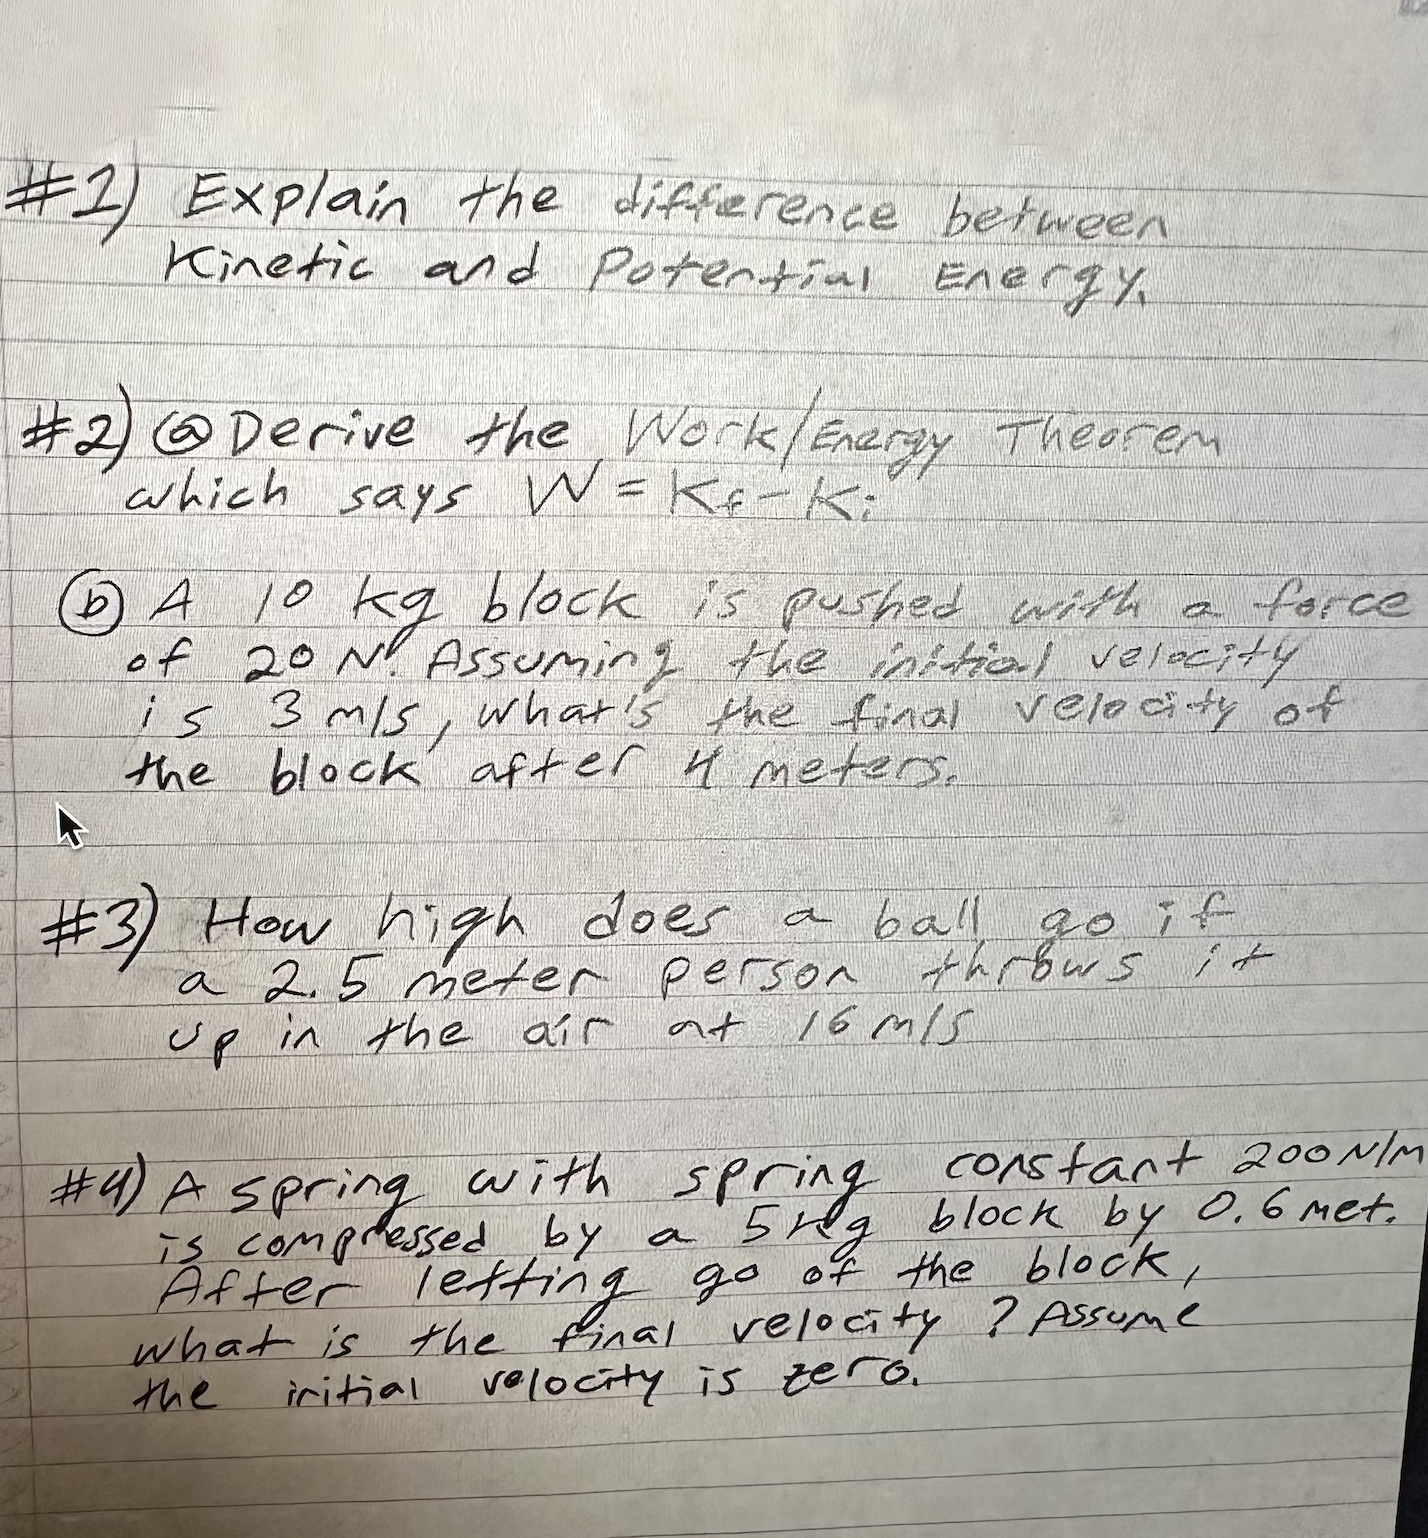 #1) Explain the difference between
Kinetic and Potential Energy.
#2) ⓐ Derive the Work/Energy Theorem
which says W = Kf - Ki
ⓑ A 10 kg block is pushed with a force
of 20 N. Assuming the initial velocity
is 3 m/s, what's the final velocity of
the block after 4 meters.
#3) How high does a ball go if
a 2.5 meter person throws it
up in the air at 16 m/s
#4) A spring with spring constant 200 N/m
is compressed by a 5 kg block by 0.6 met.
After letting go of the block,
what is the final velocity? Assume
the initial velocity is zero.